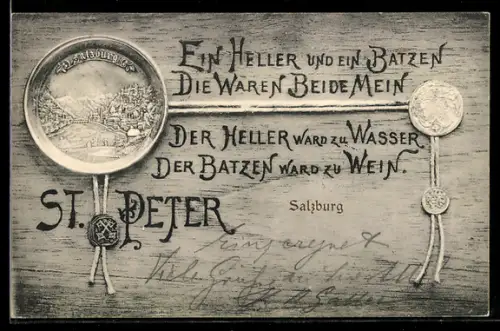 Salzburg
EIN HELLER UND EIN BATZEN
DIE WAREN BEIDE MEIN
DER HELLER WARD ZU WASSER.
DER BATZEN WARD ZU WEIN.
ST. PETER
Salzburg
Eingeregnet
Viele